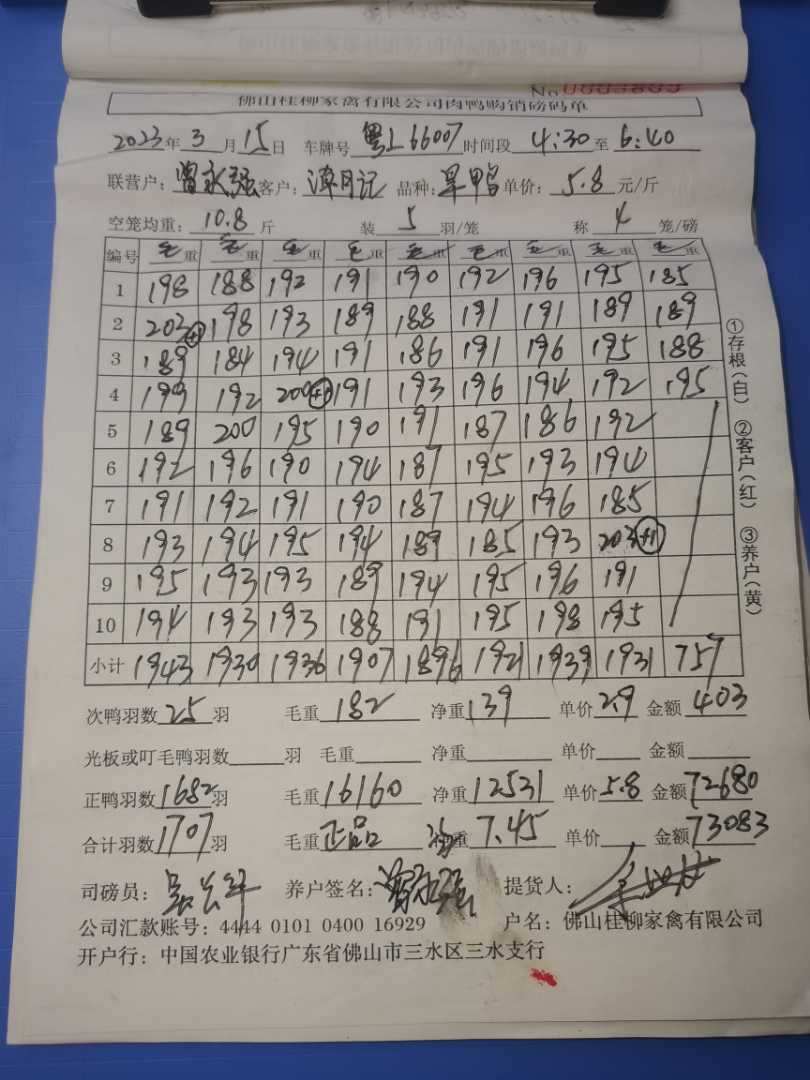 佛山桂柳家禽有限公司肉鸭购销磅码单
2023年3月15日 车牌号 粤L66007 时间段 4:30 至 6:40
联营户: 曾永强 客户: 潭月记 品种: 旱鸭 单价: 5.8 元/斤
空笼均重: 10.8 斤 装 5 羽/笼 称 4 笼/磅
编号 毛重 毛重 毛重 毛重 毛重 毛重 毛重 毛重 毛重
1 198 188 192 191 190 192 196 195 185
2 203+1 198 193 189 188 191 191 189 189
3 189 184 194 191 186 191 196 195 188
4 199 192 200+1 191 193 196 194 192 195
5 189 200 195 190 191 187 186 192
6 192 196 190 194 187 195 193 194
7 191 192 191 190 187 194 196 185
8 193 194 195 194 189 185 193 203+1
9 195 193 193 189 194 195 196 191
10 194 193 193 188 191 195 198 195
小计 1943 1930 1936 1907 1896 1921 1939 1931 757
①存根(白) ②客户(红) ③养户(黄)
次鸭羽数 25 羽 毛重 182 净重 139 单价 2.9 金额 403
光板或叮毛鸭羽数 羽 毛重 净重 单价 金额
正鸭羽数 1682 羽 毛重 16160 净重 12531 单价 5.8 金额 72680
合计羽数 1707 羽 毛重 正品 重 7.45 单价 金额 73083
司磅员: 养户签名: 曾永强 提货人:
公司汇款账号: 4444 0101 0400 16929 户名: 佛山桂柳家禽有限公司
开户行: 中国农业银行广东省佛山市三水区三水支行